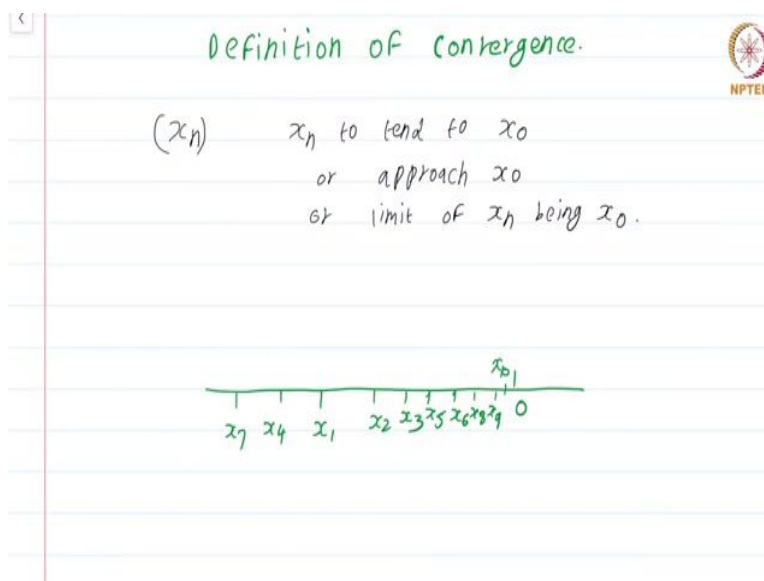 Definition of convergence.
NPTEL
(xₙ) xₙ to tend to x₀
or approach x₀
or limit of xₙ being x₀.
x₇ x₄ x₁ x₂ x₃ x₅ x₆ x₈ x₉ 0